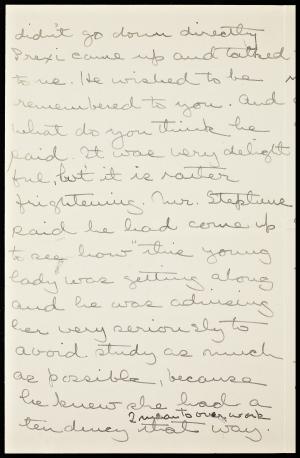 didn't go down directly
Prexi came up and talked
to me. He wished to be
remembered to you. And
what do you think he
said. It was very delight
ful, but it is rather
frightening. Mr. Stephens
said he had come up
to see how "this young
lady was getting along
and he was advising
her very seriously to
avoid study as much
as possible, because
he knew she had a
I mean to over work
tendency that way.